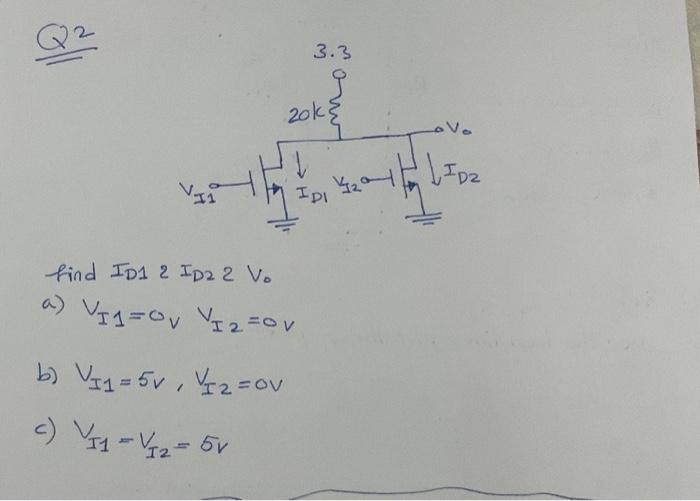 Q2
3.3
20k
Vo
VI1
ID1
VI2
ID2
find ID1 & ID2 & Vo
a) VI1=0V VI2=0V
b) VI1=5V, VI2=0V
c) VI1=VI2=5V